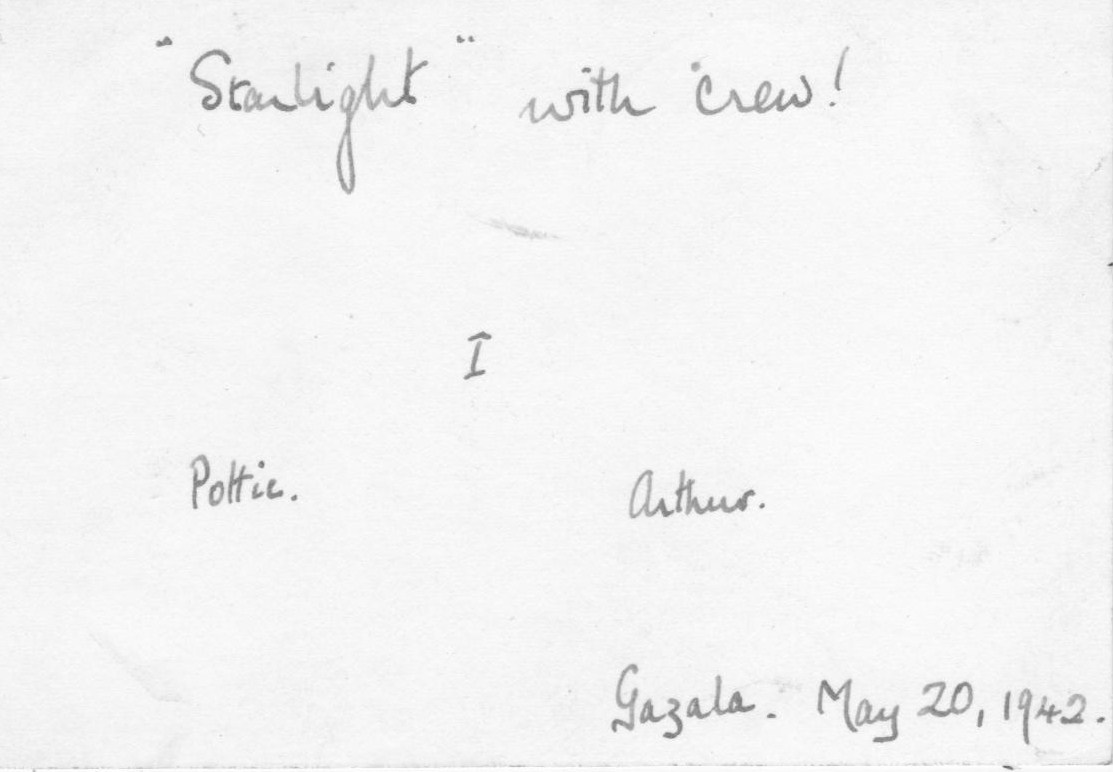 "Starlight" with crew!
I
Pottie. Arthur.
Gazala. May 20, 1942.